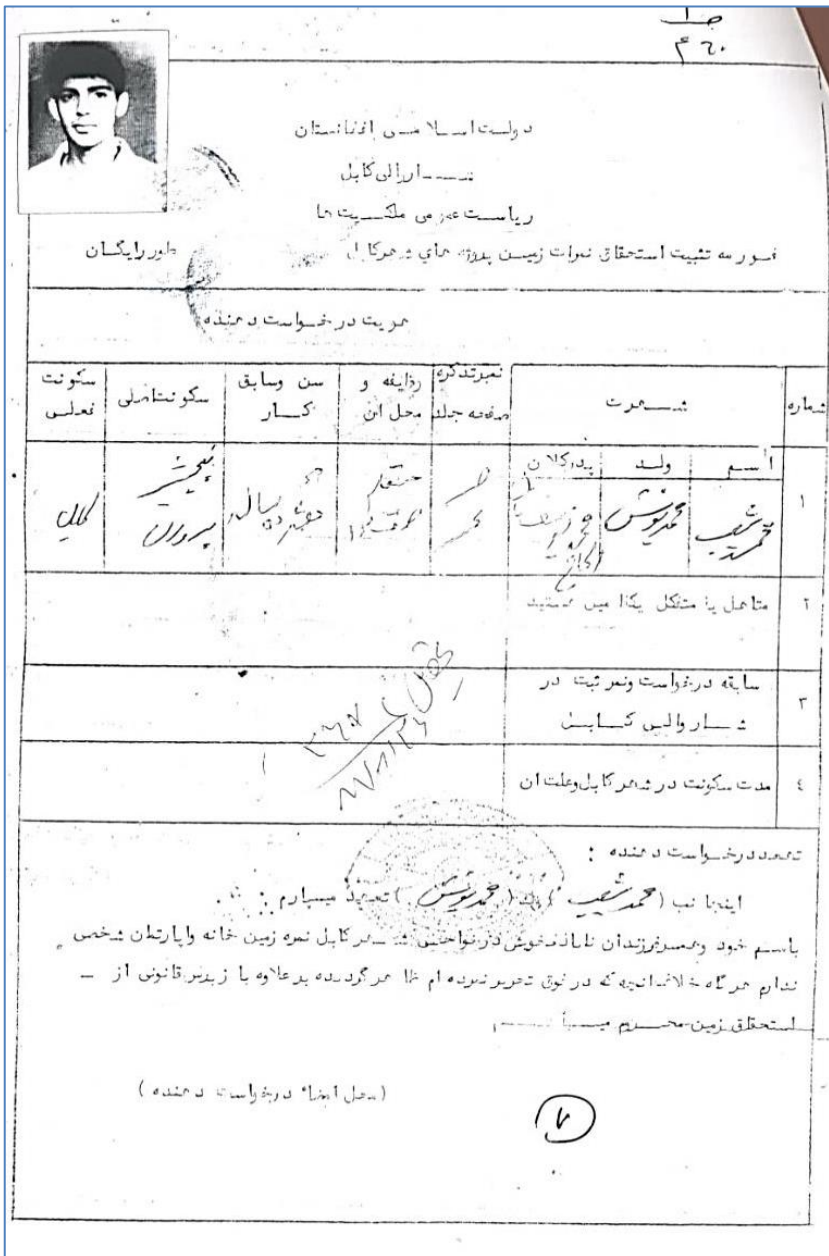 دولت اسلامی افغانستان
شاروالی کابل
ریاست عمومی ملکیت ها
فورمه تثبیت استحقاق نمرات زمین پروژه های شهر کابل طور رایگان
هویت درخواست دهنده
شماره شهرت نمبر تذکره صفحه جلد وظایفه و محل ان سن وسابق کار سکونت اصلی سکونت فعلی
اسم ولد پدرکلان
۱ محمد شعیب محمد یونس متعلم پنجشیر پروان کابل
۲ متاهل یا متکفل یکدا مین هستید
۳ سابقه درخواست ونمبر ثبت در شاروالی کابل
٤ مدت سکونت در شهر کابل وعلت ان
تعهد درخواست دهنده :
اینجا نب (محمد شعیب) ولد (محمد یونس) تعهد میسپارم :
باسم خود وهمسر وفرزندان نابالغ خویش در نواحی شهر کابل نمره زمین خانه واپارتمان شخصی
ندارم هر گاه خلاف انچه که در فوق تحریر نموده ام ظا هر گردیده بر علاوه با ز پرس قانونی از
استحقاق زمین محروم میبا شم
(محل امضاء درخواست دهنده)
۷